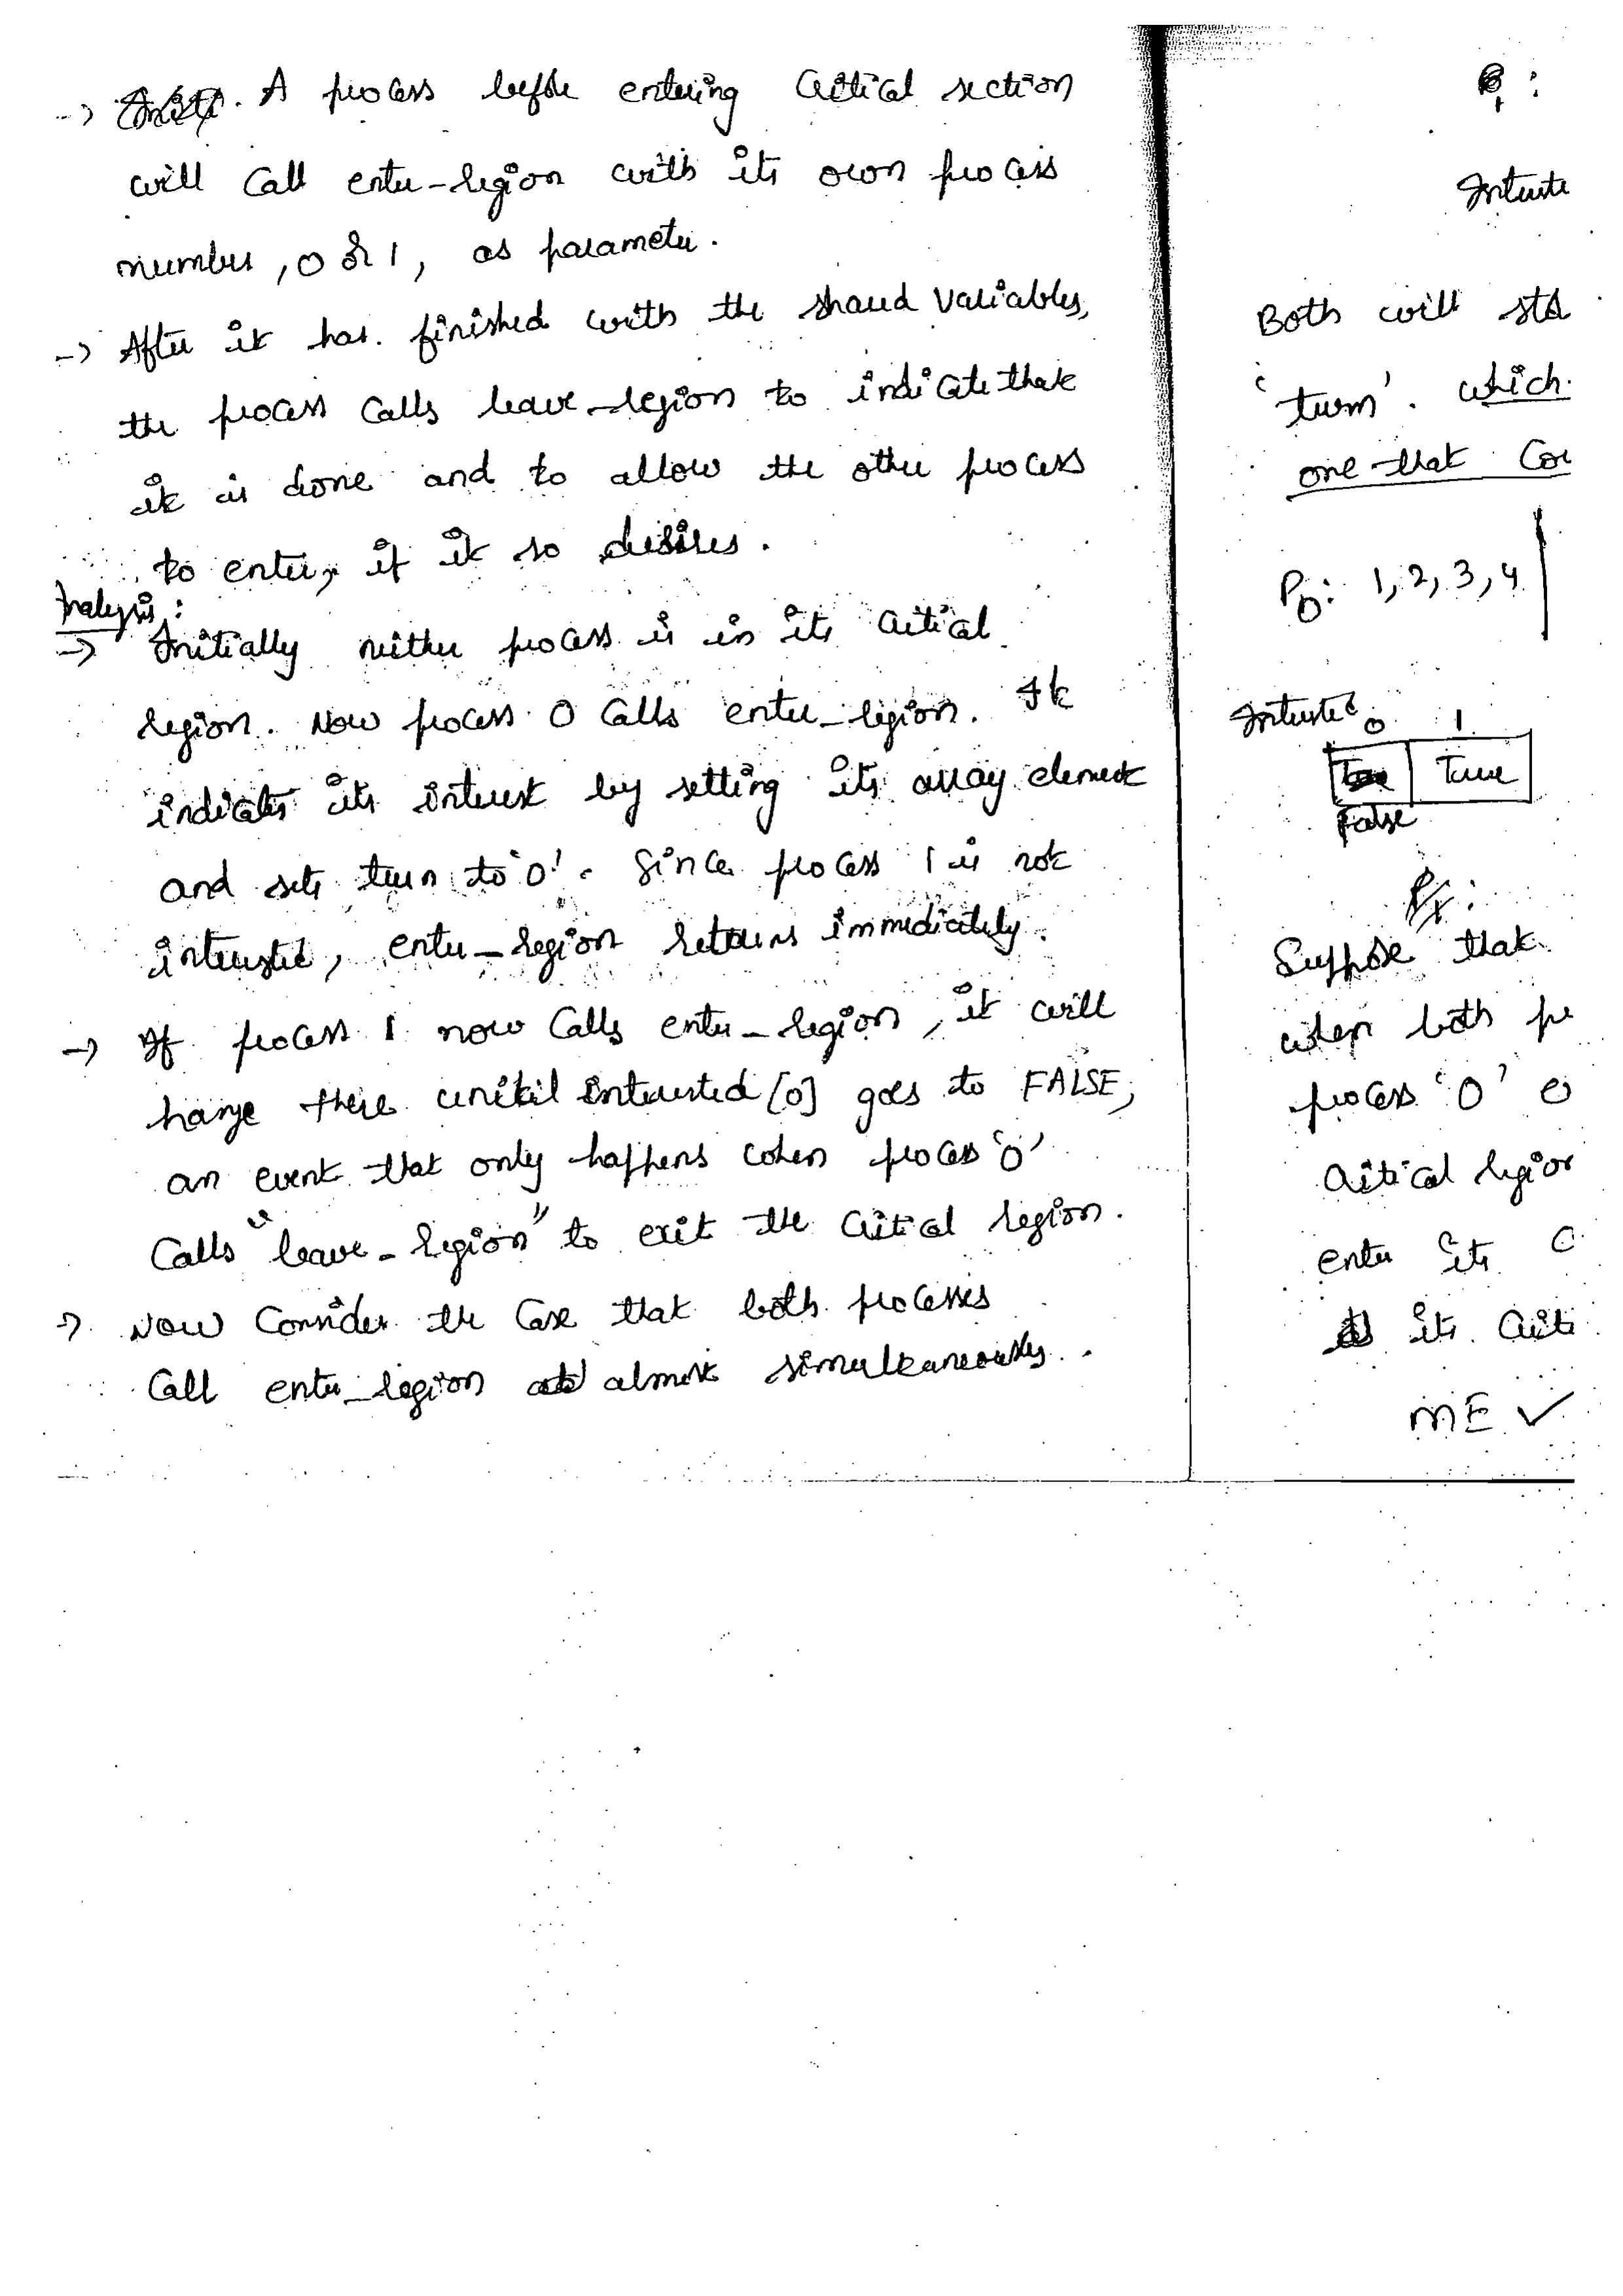 -> A process before entering critical section
will call enter-region with its own process
number, 0 or 1, as parameter.
-> After it has finished with the shared variables,
the process calls leave-region to indicate that
it is done and to allow the other process
to enter, if it so desires.
Analysis:
-> Initially neither process is in its critical
region. Now process 0 calls enter_region. It
indicates its interest by setting its array element
and sets turn to '0'. Since process 1 is not
interested, enter_region returns immediately.
-> If process 1 now calls enter_region, it will
hange there until interested [0] goes to FALSE,
an event that only happens when process '0'
calls "leave-region" to exit the critical region.
-> Now Consider the Case that both processes
Call enter_region almost simultaneously.
Intereste
Both will sto
'turn'. which
one that Co
P0: 1, 2, 3, 4
Interested 0 1
True
False
Suppose that
when both pr
process '0' e
critical region
enter its c
its criti
ME ✓